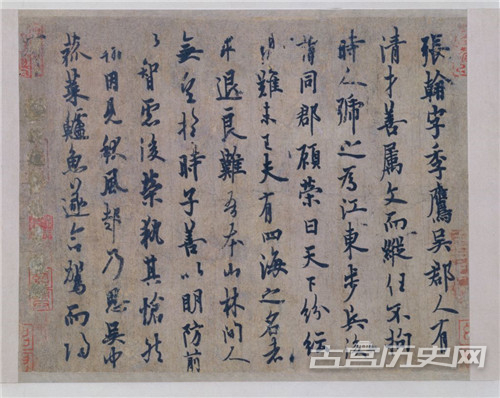 張翰字季鷹吳郡人有
清才善属文而縱任不拘
時人號之為江東步兵後
謂同郡顧榮曰天下紛紜
禍難未已夫有四海之名者
求退良難吾本山林間人
無望於時子善以明防前
以智慮後榮執其愴然
翰因見秋風起乃思吳中
菰菜鱸魚遂命駕而歸
古宫历史网